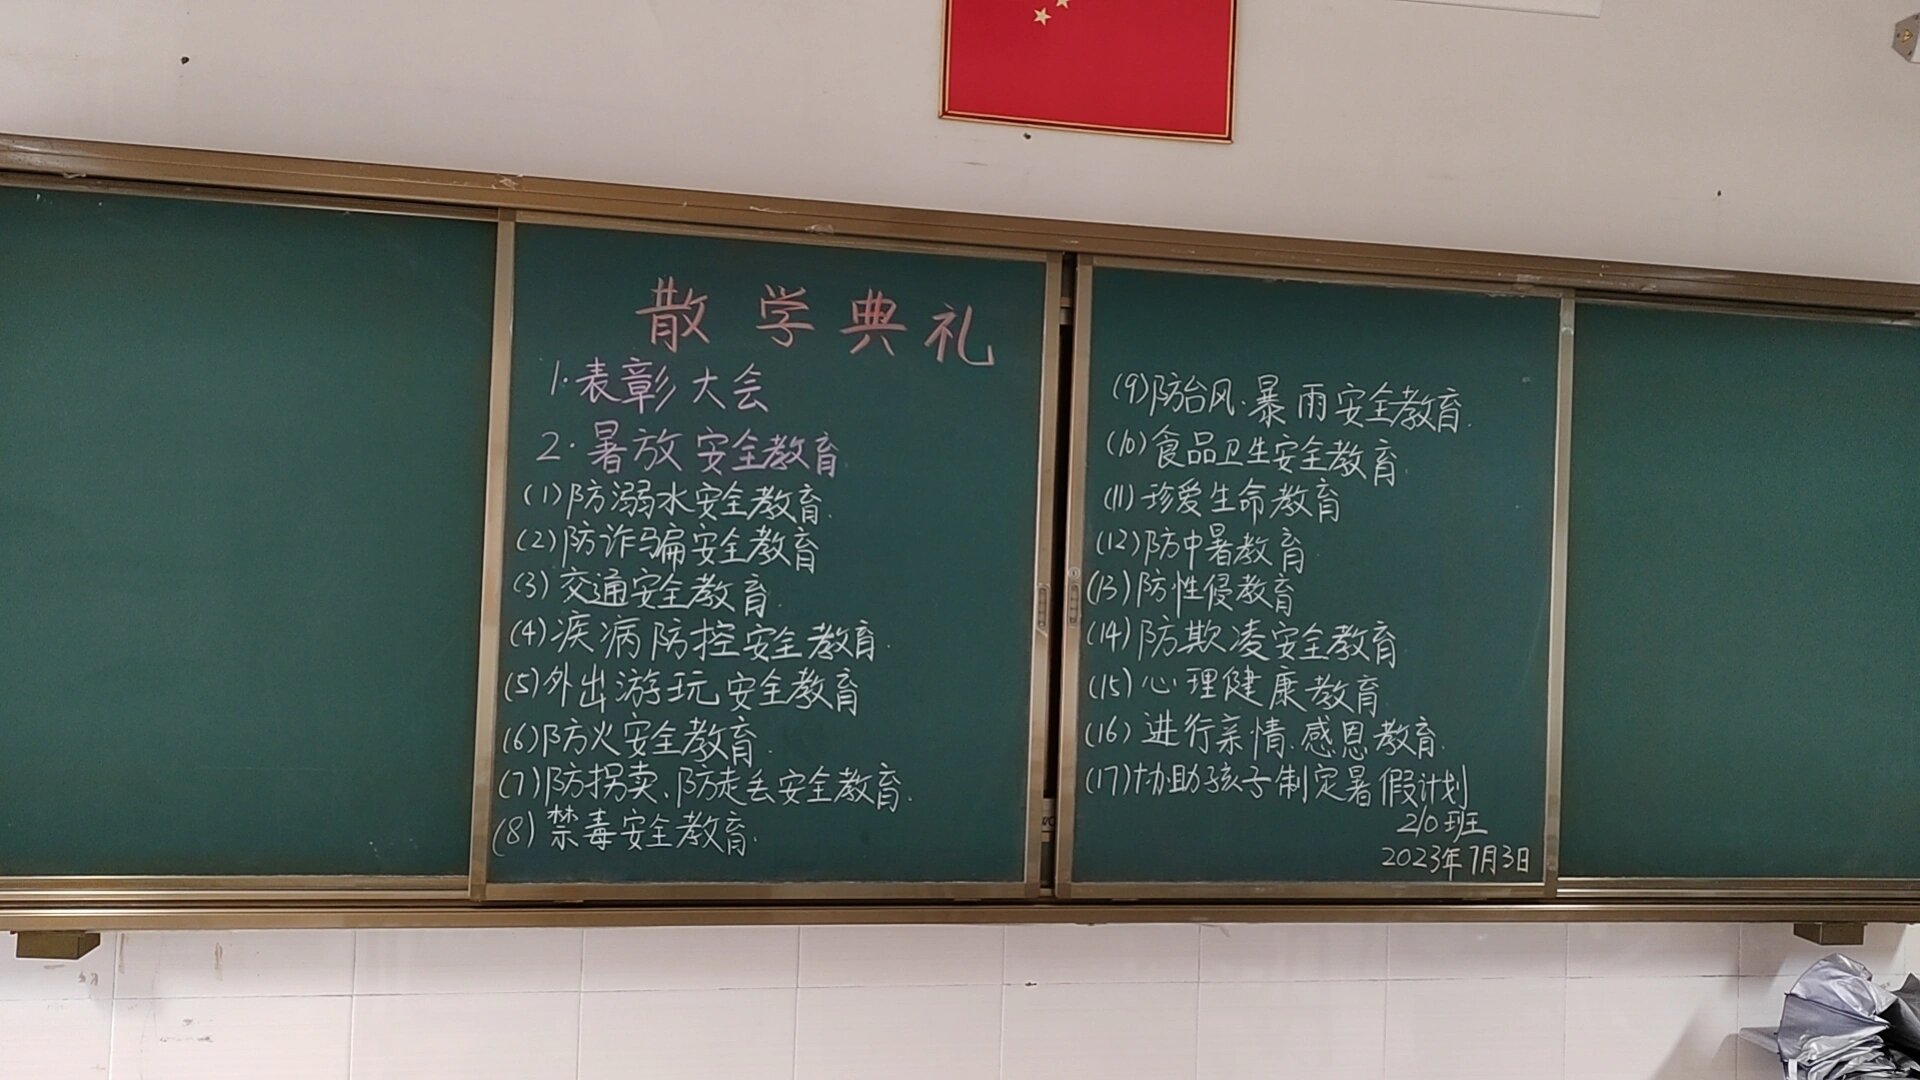 散学典礼
1.表彰大会
2.暑放安全教育
(1)防溺水安全教育.
(2)防诈骗安全教育
(3)交通安全教育.
(4)疾病防控安全教育.
(5)外出游玩安全教育
(6)防火安全教育.
(7)防拐卖、防走丢安全教育.
(8)禁毒安全教育.
(9)防台风.暴雨安全教育.
(10)食品卫生安全教育.
(11)珍爱生命教育
(12)防中暑教育.
(13)防性侵教育
(14)防欺凌安全教育.
(15)心理健康教育.
(16)进行亲情、感恩教育.
(17)协助孩子制定暑假计划
210班
2023年7月3日